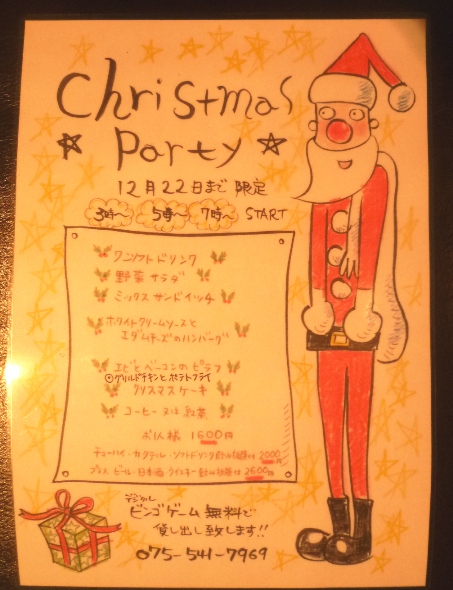 Christmas
Party
12月22日まで 限定
3時〜 5時〜 7時〜 START
ソフトドリンク
野菜サラダ
ミックスサンドイッチ
ホワイトクリームソースと
エダムチーズのハンバーグ
エビとベーコンのピラフ
グリルドチキンとポテトフライ
クリスマスケーキ
コーヒー 又は 紅茶
お1人様 1600円
チューハイ・カクテル・ソフトドリンク飲み放題は 2000円
プラス ビール・日本酒 ウイスキー飲み放題は 2600円
ビンゴゲーム 無料で
貸し出し致します!!
075-541-7969